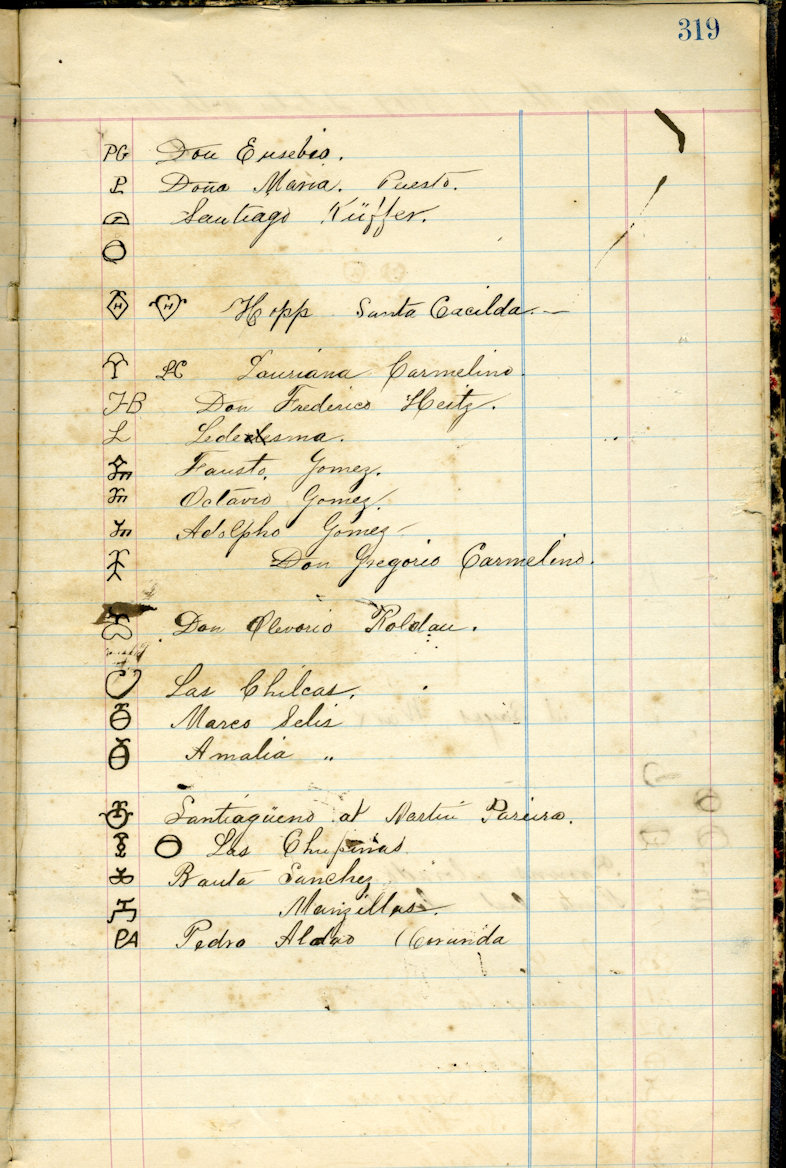 319
PG Don Eusebio.
P Doña Maria. Puesto.
Santiago Küffer.
H H Hopp Santa Cacilda.
LC Lauriana Carmelino.
FB Don Frederico Heitz.
L Ledesma.
Fausto. Gomez.
Octavio Gomez.
Adolpho Gomez
Don Gregorio Carmelino.
Don Olevorio Roldau.
Las Chilcas.
Marco Selis
Amalia "
Santiagüeno at Martin Pareira.
Las Chupinas
Bauta Sanchez
Manzillas.
PA Pedro Aldao (Corunda